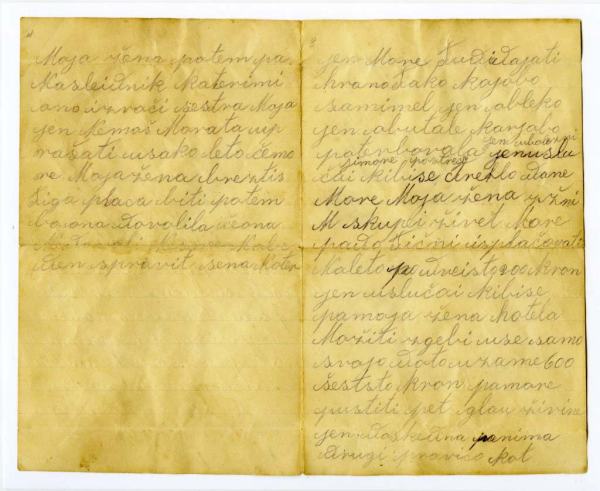 Moja žena potem pa
Nasleidnik Katerimi
ono izrači sestra Moja
jen Nemoš Morata up
rašati usako leto čemo
re Moja žena brez tis
tiga placa biti potem
bo ona dovolila če ona
den spravit sena Koter
3
jen More tudi dajati
hrano tako kajobo
sam imel jen obleko
jen obutale karjabo
paterbovala jenuslu
simore postreč
čai kibise dreklo dane
More Moja žena ržni
M skupei živet More
pa do sičini izplačovati
Na leto po dveisto 200 kron
jen uslučai kibise
pa moja žena hotela
Možiti zgebi use samo
svojo doto uzame 600
šeststo kron pa more
pustiti pet glau živine
jen doskedna panima
drugi pravico kot